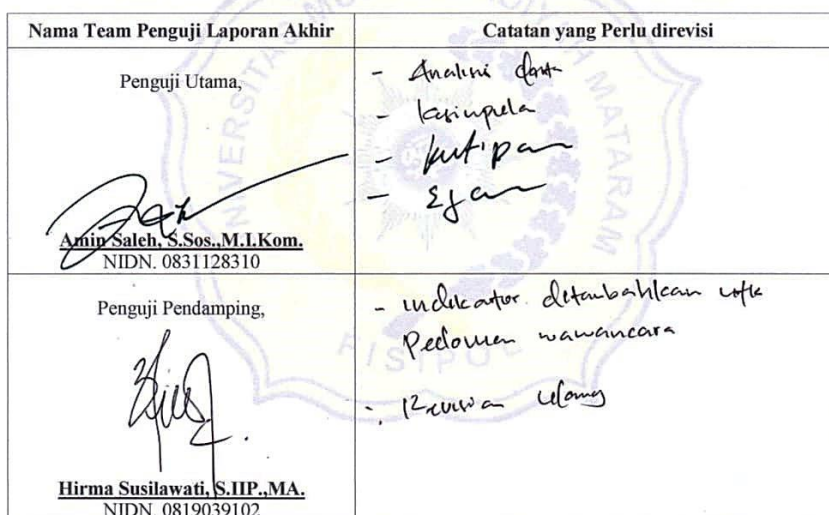 Nama Team Penguji Laporan Akhir
Catatan yang Perlu direvisi
Penguji Utama,
Amin Saleh, S.Sos.,M.I.Kom.
NIDN. 0831128310
- Analisis data
- kesimpulan
- kutipan
- Ejaan
Penguji Pendamping,
Hirma Susilawati, S.IIP.,MA.
NIDN. 0819039102
- indikator ditambahkan utk
Pedoman wawancara
- Revisian ulang
UNIVERSITAS MUHAMMADIYAH MATARAM
FISIPOL